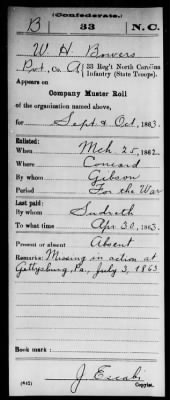 (Confederate.)
B 33 N.C.
W. H. Bowers
Pvt, Co. A, 33 Reg't North Carolina
Infantry (State Troops).
Appears on
Company Muster Roll
of the organization named above,
for Sept & Oct, 1863.
Enlisted:
When Mch. 25, 1862.
Where Concord
By whom Gibson
Period For the War
Last paid:
By whom Sudreth
To what time Apr. 30, 1863.
Present or absent Absent
Remarks: Missing in action at
Gettysburg, Pa, July 3, 1863
Book mark:
J. Escabi
(642) Copyist.